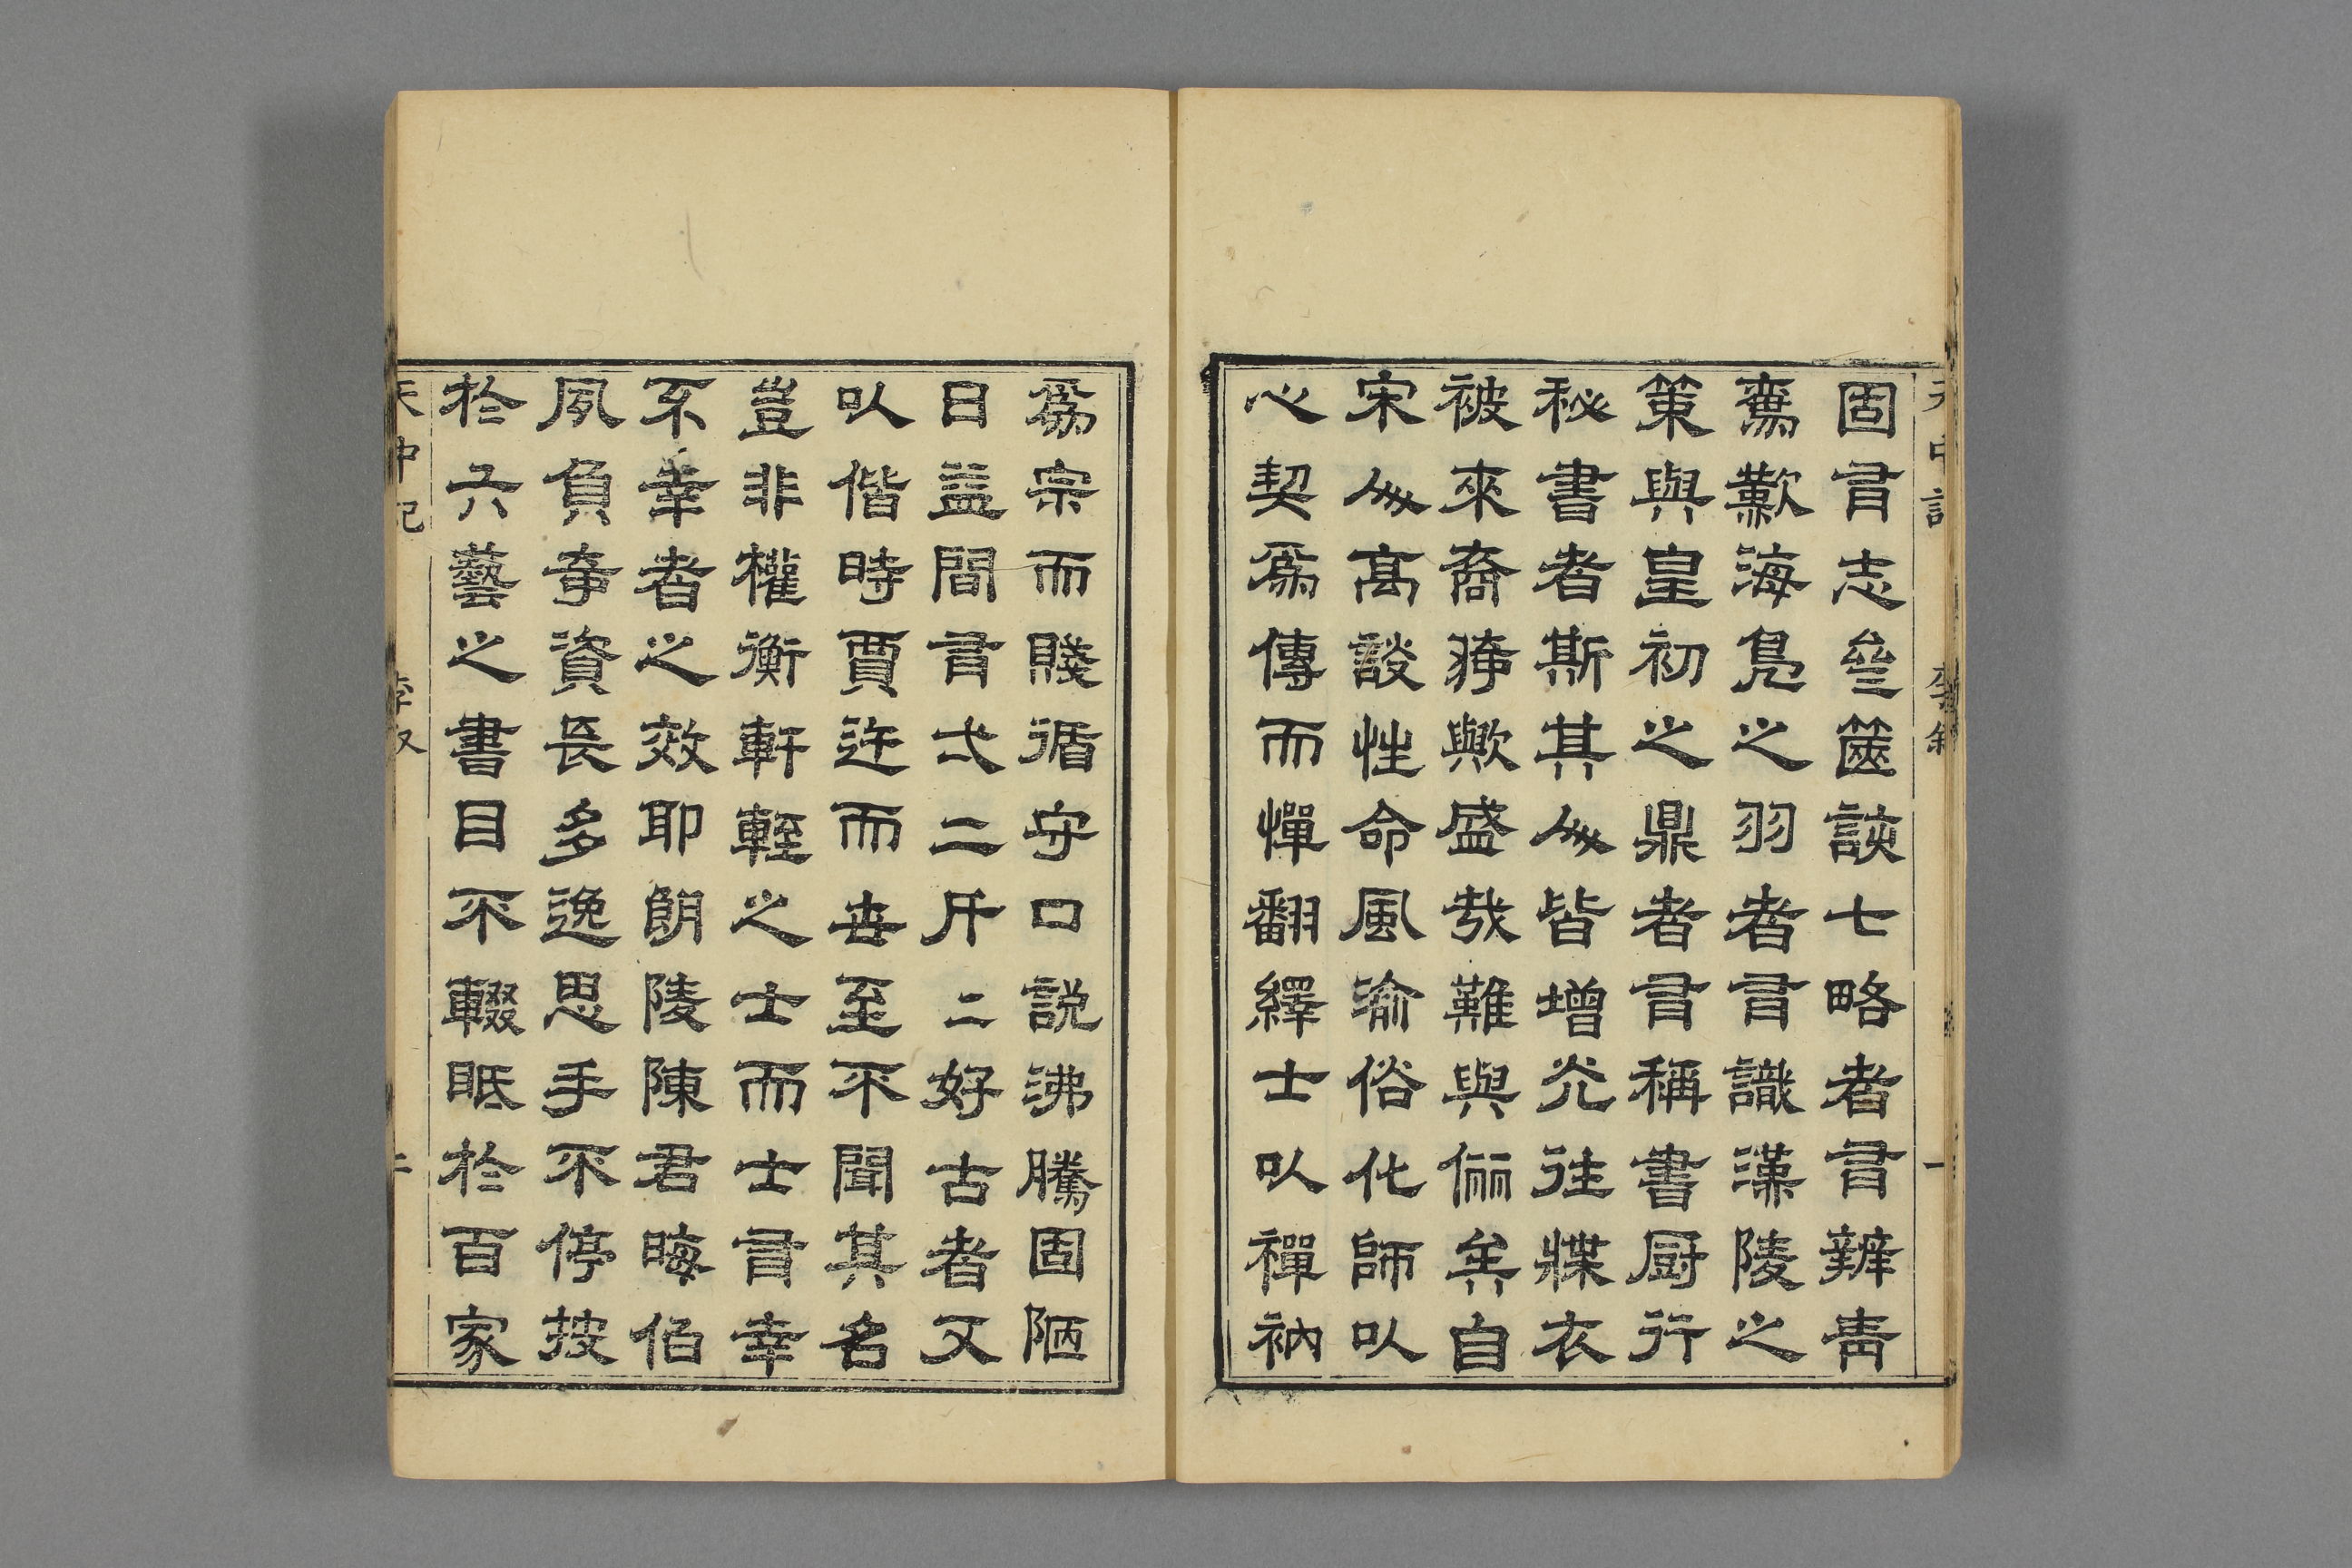 固䏍志叄篋談七略者䏍辨青
鸞歎海鳧之羽者䏍識漢陵之
策與皇初之鼎者䏍稱書厨行
秘書者斯其人皆增光往牒衣
被來裔猗歟盛哉難與儷矣自
宋人高談性命風渝俗化師以
心契爲傳而憚翻繹士以禪衲
爲宗而賤循守口說沸騰固陋
日益間䏍弌二斤二好古者又
以偕時賈迕而世至不聞其名
豈非權衡軒輊之士而士䏍幸
不幸者之效耶朗陵陳君晦伯
夙負奇資長多逸思手不停披
於六藝之書目不輟眡於百家
天中記